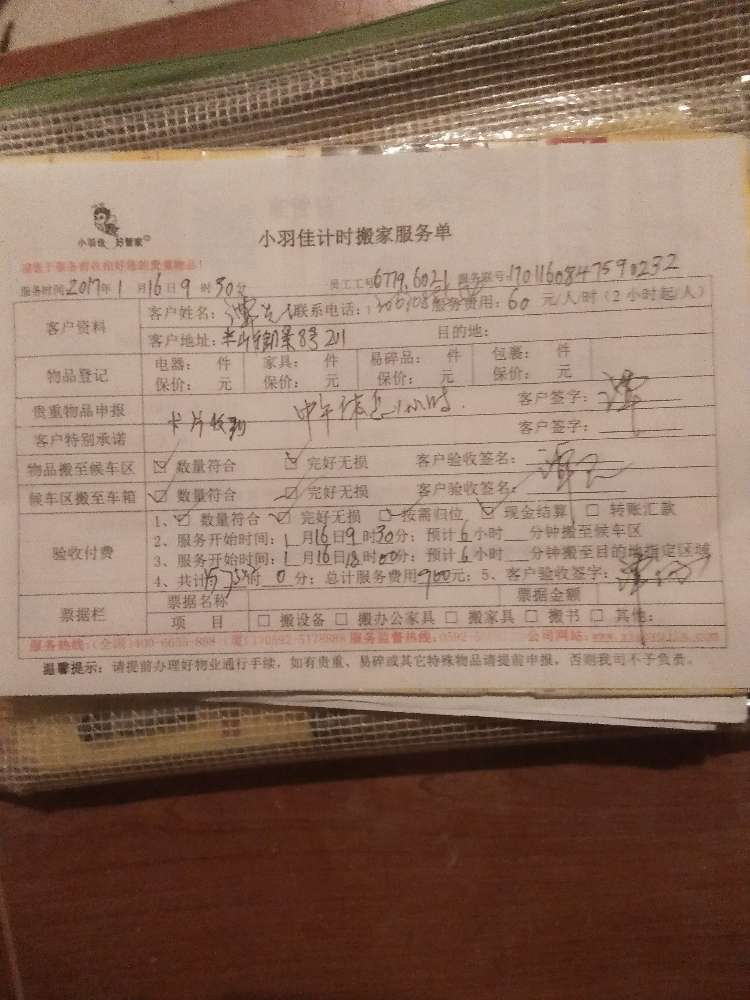 小羽佳 好管家
小羽佳计时搬家服务单
请您于服务前收拾好您的贵重物品!
服务时间2017年1月16日9时30分 员工工号6779.6021 服务账号:170116084759 0232
客户资料 客户姓名: 联系电话: 服务费用:60元/人/时(2小时起/人)
客户地址: 8号211 目的地:
物品登记 电器: 件 家具: 件 易碎品: 件 包裹: 件
保价: 元 保价: 元 保价: 元 保价: 元
贵重物品申报 客户签字:
卡片收到 中午休息1小时.
客户特别承诺 客户签字:
物品搬至候车区 ☑ 数量符合 ☑ 完好无损 客户验收签名:
候车区搬至车箱 ☑ 数量符合 ☑ 完好无损 客户验收签名:
验收付费 1、☑ 数量符合 ☑ 完好无损 ☑ 按需归位 ☑ 现金结算 □ 转账汇款
2、服务开始时间:1月16日9时30分;预计6小时 分钟搬至候车区
3、服务开始时间:1月16日18时00分;预计6小时 分钟搬至目的地指定区域
4、共计 0分;总计服务费用900元;5、客户验收签字:
票据栏 票据名称 票据金额
项 目 □ 搬设备 □ 搬办公家具 □ 搬家具 □ 搬书 □ 其他:
服务热线:(全国)400-6655-868 (厦门)0592-5178988 服务监督热线:0592-5 公司网站:
温馨提示:请提前办理好物业通行手续,如有贵重、易碎或其它特殊物品请提前申报,否则我司不予负责。